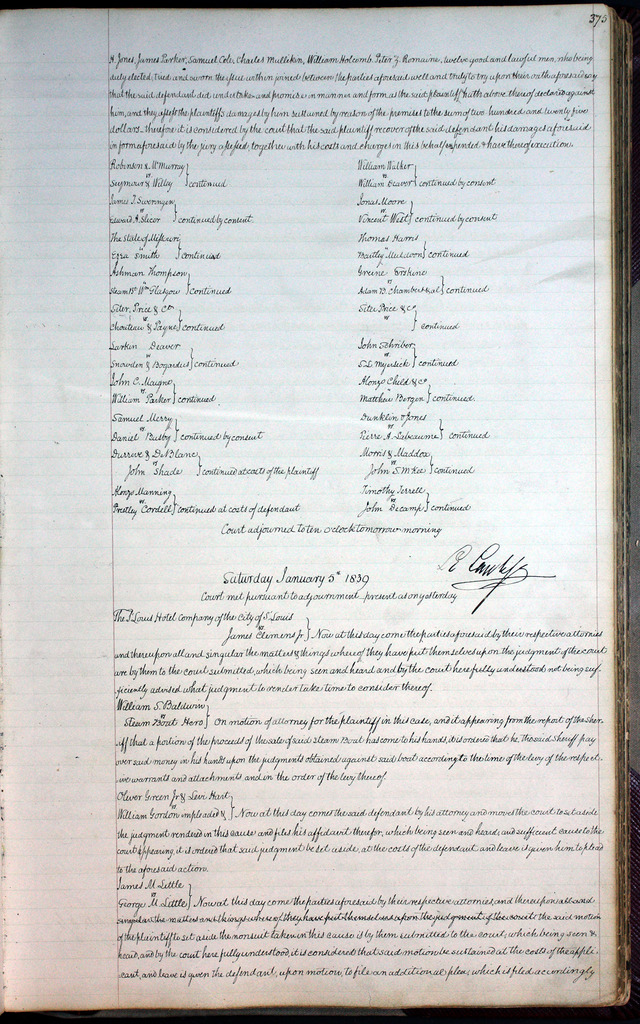 373
H. Jones, James Parker, Samuel Cole, Charles Mullikin, William Holcomb, Peter Z. Romaine, twelve good and lawful men, who being
duly elected, tried and sworn the issue within joined between the parties aforesaid well and truly to try upon their oaths aforesaid say
that the said defendant did undertake and promise in manner and form as the said plaintiff hath above thereof declared against
him, and they assess the plaintiff's damages by him sustained by reason of the premises to the sum of two hundred and twenty five
dollars. therefore it is considered by the court that the said plaintiff recover of the said defendant his damages aforesaid
in form aforesaid by the jury assessed together with his costs and charges in this behalf expended & have thereof execution.
Robinson & McMurray
vs
Seymour & Willey } continued
William Walker
vs
William Deaver } continued by consent
James T. Swearngen
vs
Edward A. Slicer } continued by consent.
Jonas Moore
vs
Vincent West } continued by consent
The State of Missouri
vs
Ezra Smith } continued
Thomas Harris
vs
continued
Ashman Thompson
vs
Steam Bt Wm Glasgow } continued
Greene Erskine
vs
Adam B. Chambers & al } continued
Siter, Price & Co
vs
Chouteau & Payne } continued
Siter Price & Co
"
" } continued
Larkin Deaver
vs
Snowden & Bogardus } continued
John Schriber
vs
continued
John C. Mayne
vs
William Parker } continued
Alonzo Child & Co
vs
Matthew Bergin } continued
Samuel Merry
vs
Daniel Busby } continued by consent
Dunklin & Jones
vs
Pierre A. Labeaume } continued
Durrive & DeBlanc
vs
John Shade } continued at costs of the plaintiff
Morris & Maddox
vs
John S. McKee } continued
Alonzo Manning
vs
Prestley Cordell } continued at costs of defendant
Timothy Terrell
vs
John Decamp } continued
Court adjourned to ten o'clock tomorrow morning
Saturday January 5th 1839
Court met pursuant to adjournment present as on yesterday
The St Louis Hotel company of the City of St Louis
vs
James Clemens Jr } Now at this day come the parties aforesaid by their respective attornies
and thereupon all and singular the matters & things whereof they have put themselves upon the judgment of the court
are by them to the court submitted, which being seen and heard and by the court here fully understood not being suf
ficiently advised what judgment to render take time to consider thereof.
William S. Baldwin
vs
Steam Boat Hero } On motion of attorney for the plaintiff in this case, and it appearing from the report of the Sher
iff that a portion of the proceeds of the sale of said Steam Boat has come to his hands, it is ordered that he, the said Sheriff pay
over said money in his hands upon the judgments obtained against said boat according to the time of the levy of the respect
ive warrants and attachments and in the order of the levy thereof
Oliver Green Jr & Levi Hart
vs
William Gordon impleaded & } Now at this day comes the said defendant by his attorney and moves the court to set aside
the judgment rendered in this cause and files his affidavit therefor, which being seen and heard, and sufficient cause to the
court appearing, it is ordered that said judgment be set aside, at the costs of the defendant and leave is given him to plead
to the aforesaid action.
James M. Little
vs
George M. Little } Now at this day come the parties aforesaid by their respective attornies, and thereupon all and
singular the matters and things whereof they have put themselves upon the judgment of the court & the said motion
of the plaintiff to set aside the nonsuit taken in this cause is by them submitted to the court; which being seen &
heard, and by the court here fully understood, it is considered that said motion be sustained at the costs of the appli-
cant, and leave is given the defendant, upon motion, to file an additional plea; which is filed accordingly